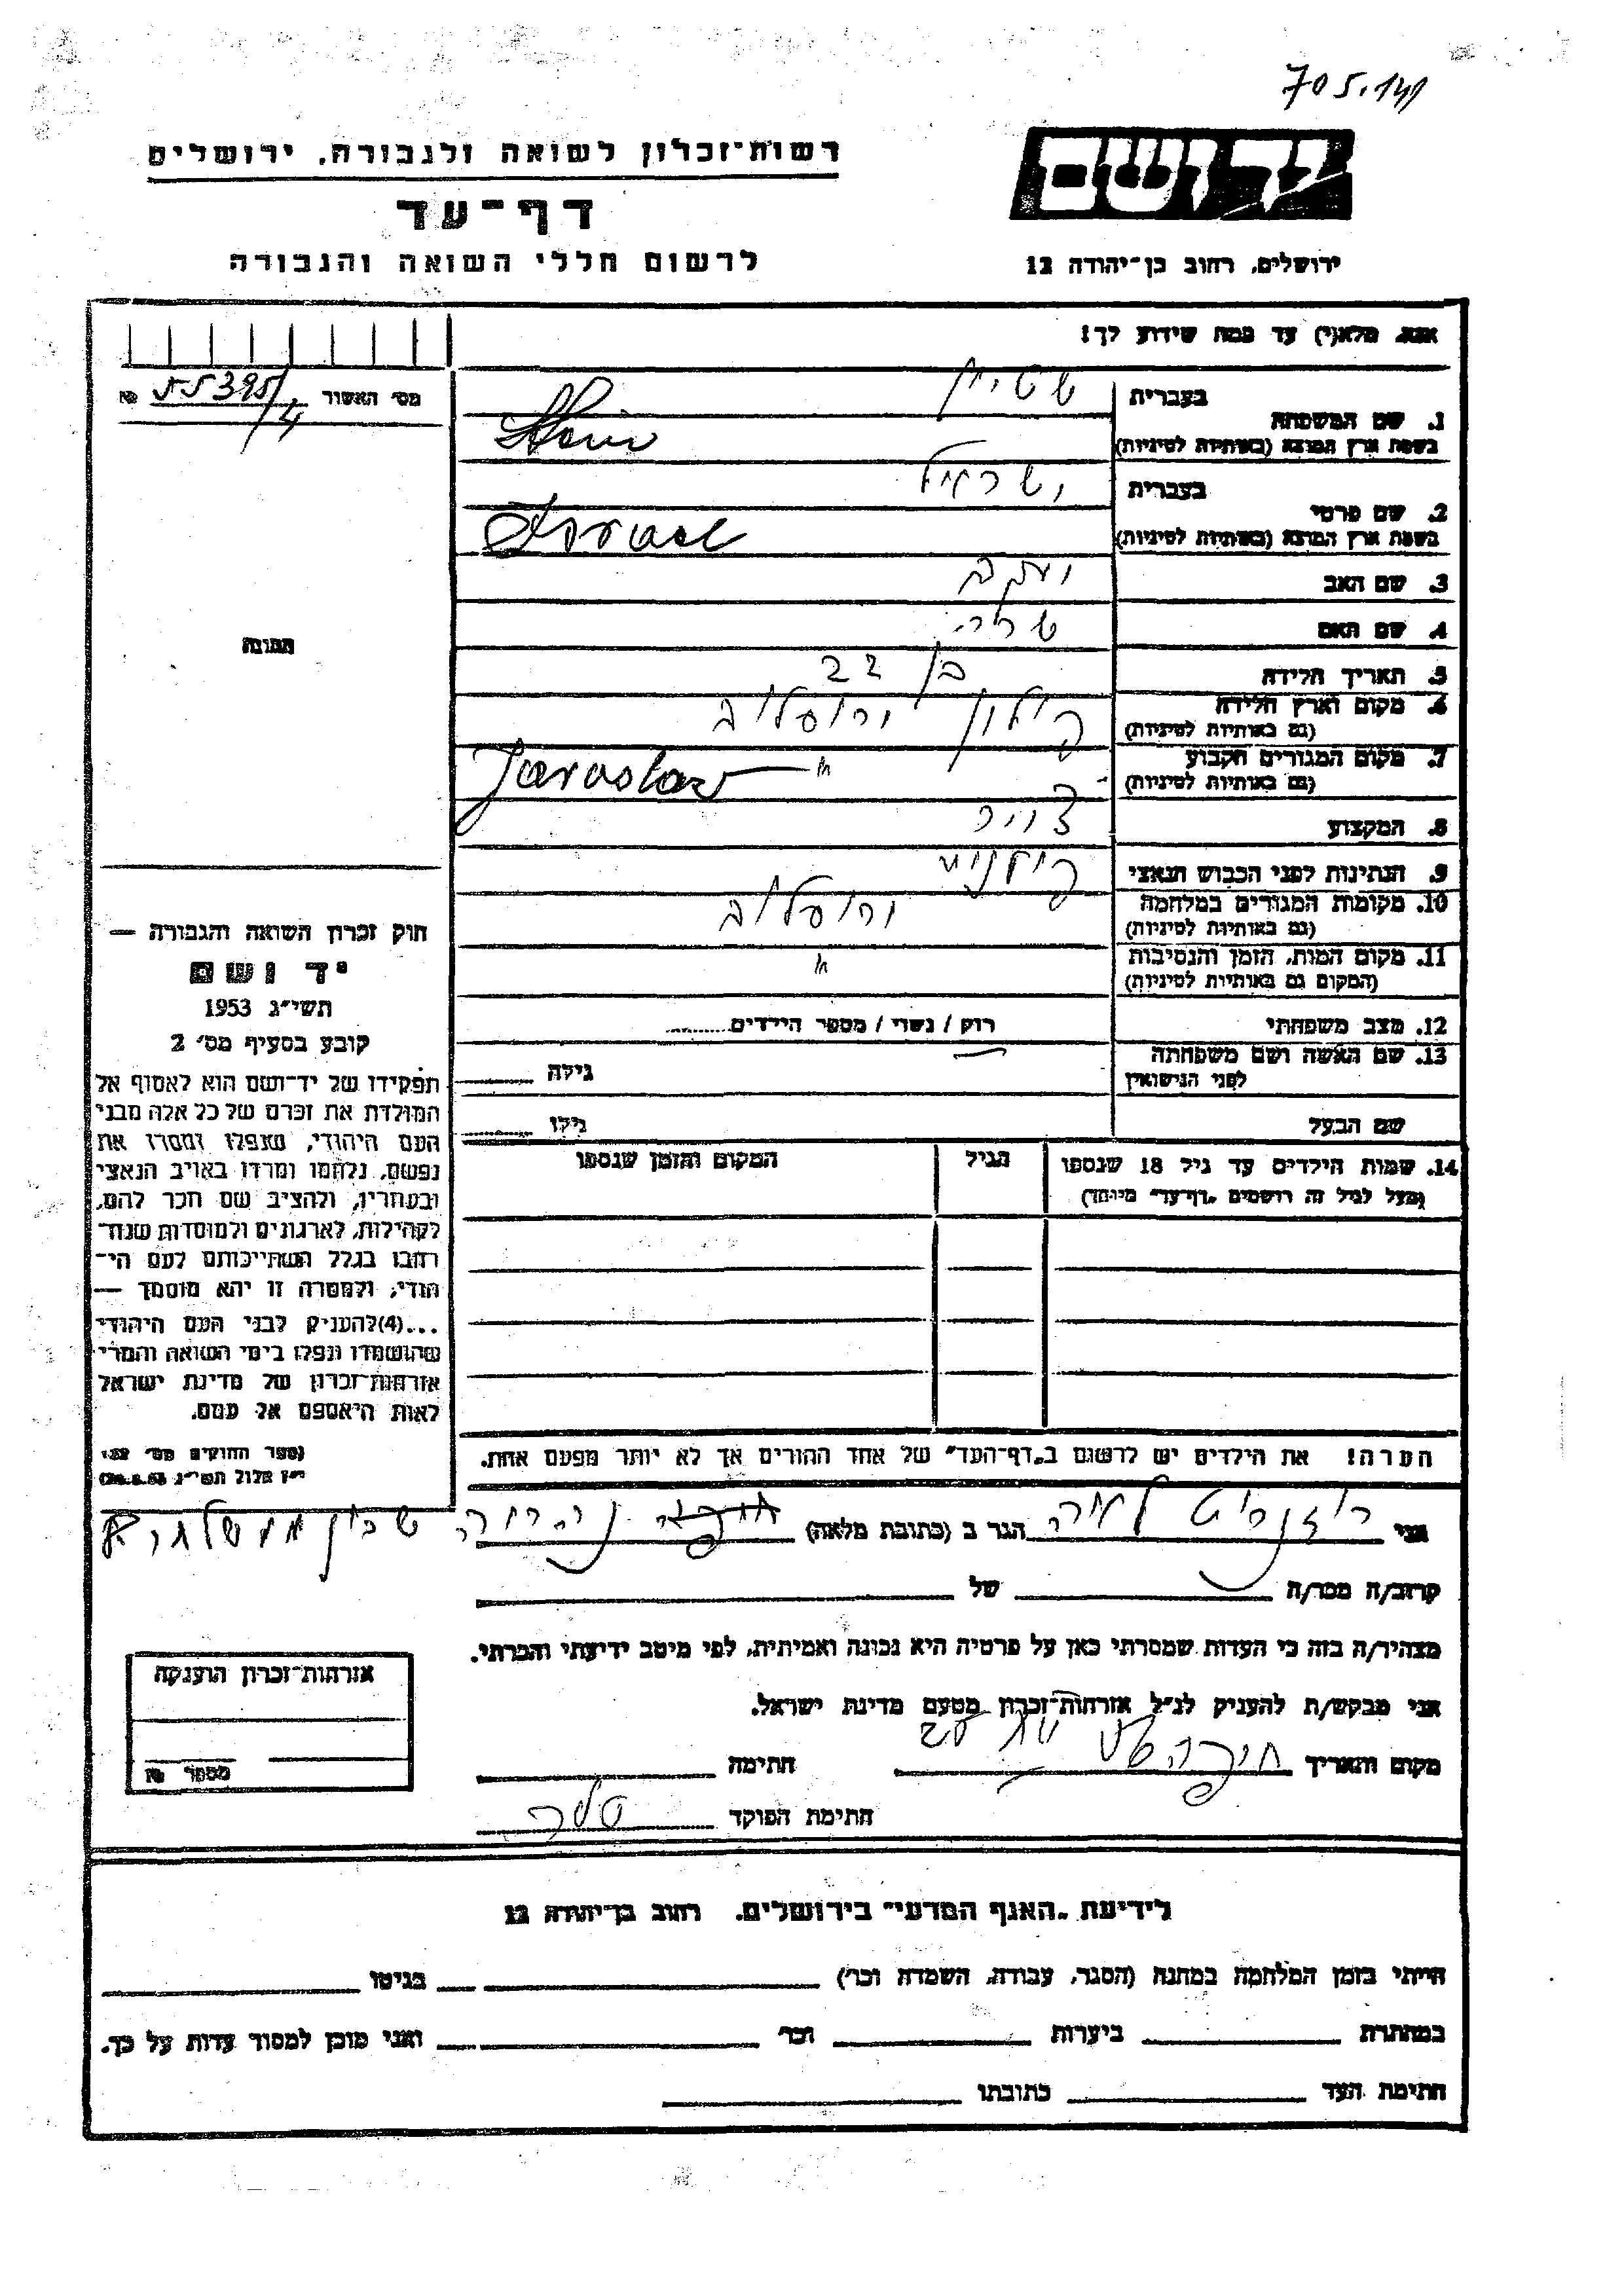 705.141
רשות־זכרון לשואה ולגבורה, ירושלים
יד ושם
דף־עד
לרשום חללי השואה והגבורה
ירושלים, רחוב בן־יהודה 12
אנא, מלא(י) עד כמה שידוע לך!
מס׳ האשור № 55395/4
בעברית שטיין
1. שם המשפחה
בשפת ארץ המוצא (באותיות לטיניות) Stein
בעברית ישראל
2. שם פרטי
בשפת ארץ המוצא (באותיות לטיניות) Israel
3. שם האב יעקב
4. שם האם שרה
תמונה
5. תאריך הלידה בן 22
6. מקום וארץ הלידה פולין ירוסלוב
(גם באותיות לטיניות)
7. מקום המגורים הקבוע Jaroslav
(גם באותיות לטיניות)
8. המקצוע
9. הנתינות לפני הכבוש הנאצי
10. מקומות המגורים במלחמה ירוסלוב
(גם באותיות לטיניות)
11. מקום המות, הזמן והנסיבות
(המקום גם באותיות לטיניות)
12. מצב משפחתי רוק / נשוי / מספר הילדים
13. שם האשה ושם משפחתה גילה
לפני הנישואין
שם הבעל גילו
חוק זכרון השואה והגבורה —
יד ושם
תשי״ג 1953
קובע בסעיף מס׳ 2
תפקידו של יד־ושם הוא לאסוף אל
המולדת את זכרם של כל אלה מבני
העם היהודי, שנפלו ומסרו את
נפשם, נלחמו ומרדו באויב הנאצי
ובעוזריו, ולהציב שם וזכר להם,
לקהילות, לארגונים ולמוסדות שנח־
רבו בגלל השתייכותם לעם הי־
הודי, ולמטרה זו יהא מוסמך —
...(4)להעניק לבני העם היהודי
שהושמדו ונפלו בימי השואה והמרי
אזרחות־זכרון של מדינת ישראל
לאות היאספם אל עמם.
(ספר החוקים מס׳ 132
י״ז אלול תשי״ג 28.8.53)
14. שמות הילדים עד גיל 18 שנספו הגיל המקום והזמן שנספו
(מעל לגיל זה רושמים „דף־עד״ מיוחד)
הערה! את הילדים יש לרשום ב„דף־העד״ של אחד ההורים אך לא יותר מפעם אחת.
אני הגר ב (כתובת מלאה)
קרוב/ה מכר/ה של
מצהיר/ה בזה כי העדות שמסרתי כאן על פרטיה היא נכונה ואמיתית, לפי מיטב ידיעתי והכרתי.
אני מבקש/ת להעניק לנ״ל אזרחות־זכרון מטעם מדינת ישראל.
מקום ותאריך חתימה
חתימת הפוקד
אזרחות־זכרון הוענקה
מספר №
לידיעת „האגף המדעי״ בירושלים, רחוב בן־יהודה 12
הייתי בזמן המלחמה במחנה (הסגר, עבודה, השמדה וכו׳) בגיטו
במחתרת ביערות וכו׳ ואני מוכן למסור עדות על כך.
חתימת העד כתובתו